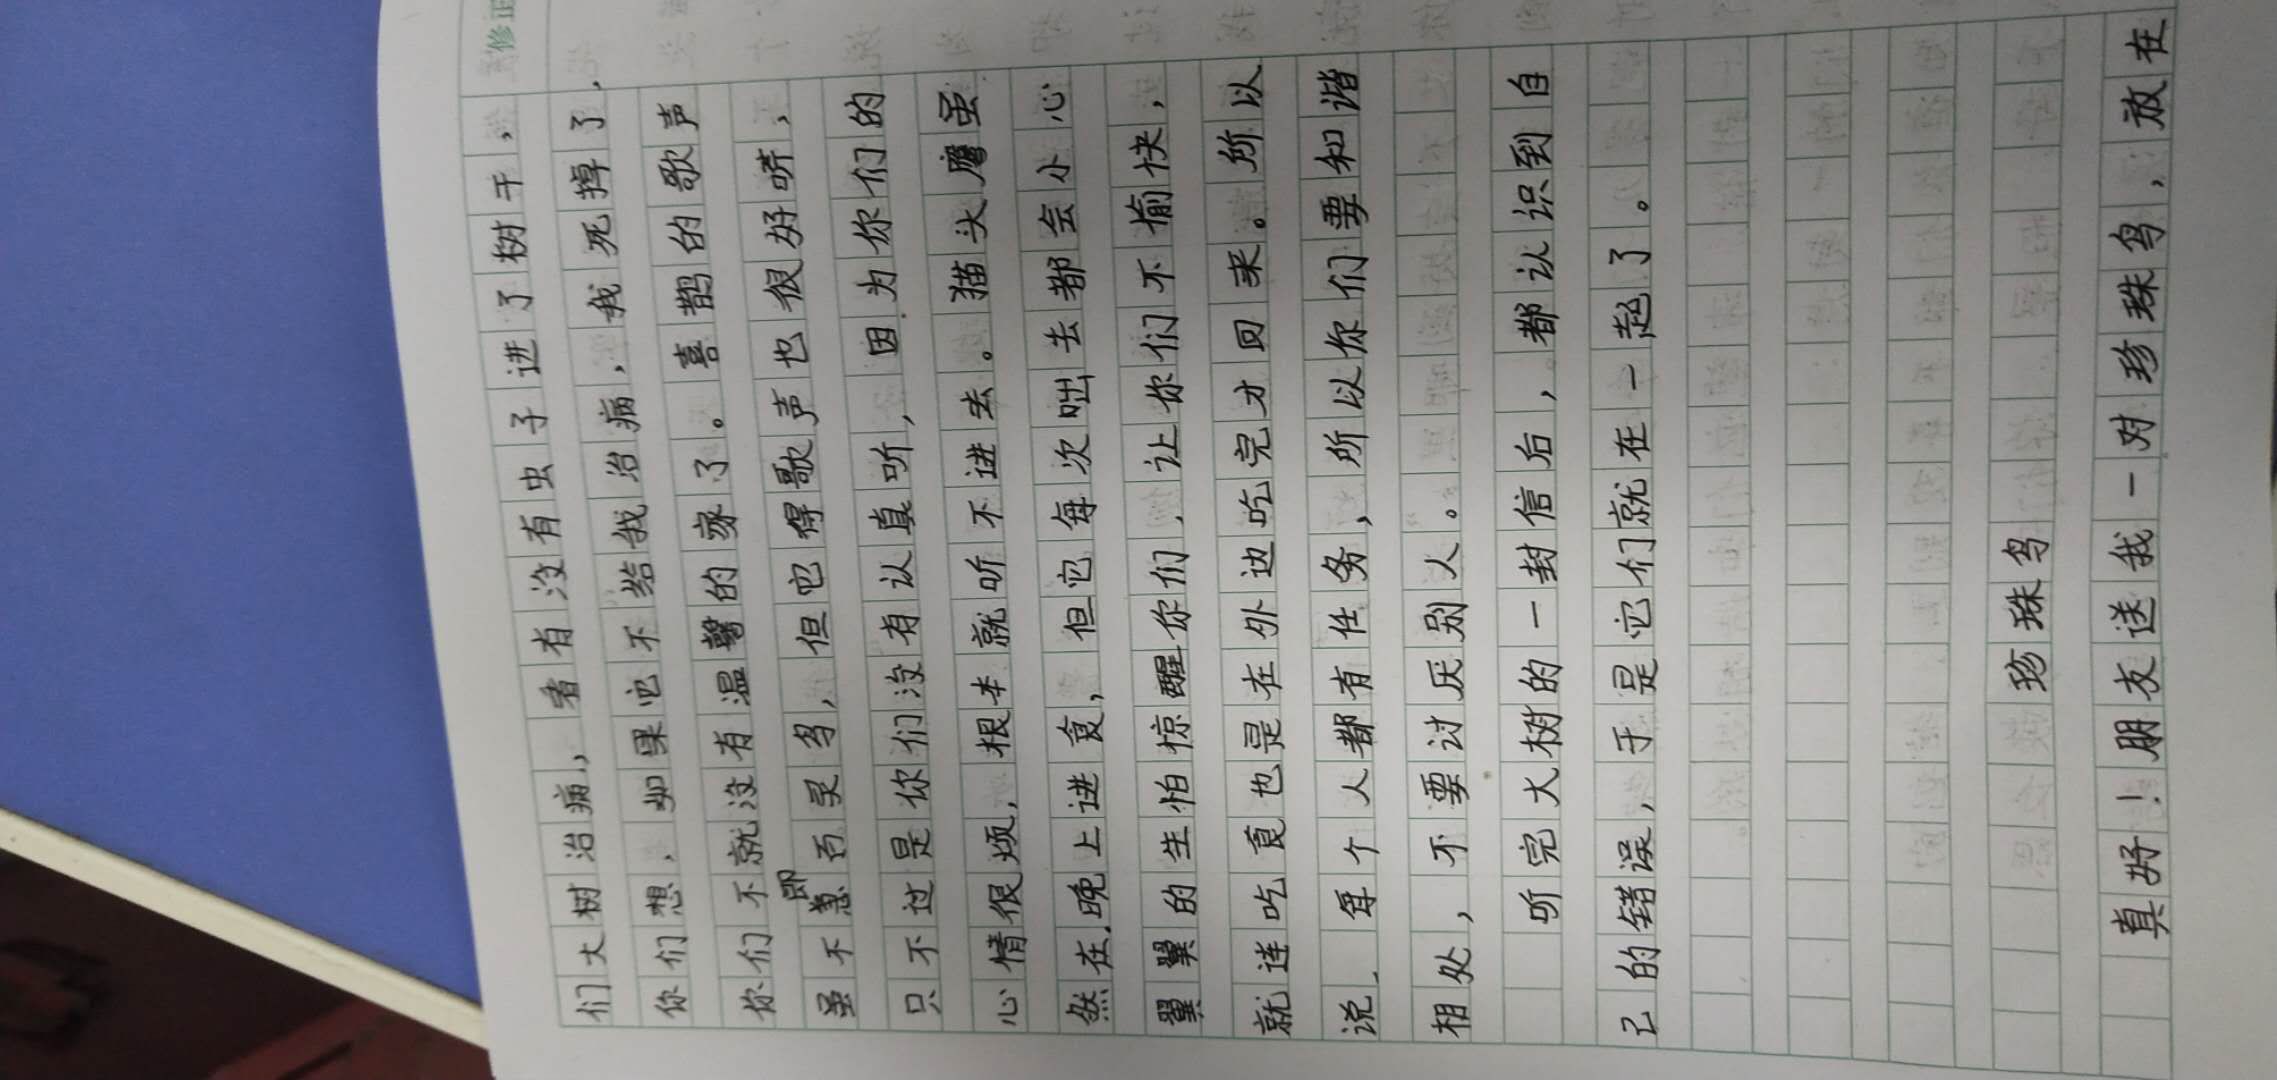 修正
们大树治病，看有没有虫子进了树干，
你们想，如果它不给我治病，我死掉了，
你们不就没有温馨的家了。喜鹊的歌声
虽不即百灵鸟，但它得歌声也很好听，
只不过是你们没有认真听，因为你们的
心情很烦，根本就听不进去。猫头鹰虽
然在晚上进食，但它每次出去都会小心
翼翼的生怕惊醒你们，让你们不愉快，
就连吃食也是在外边吃完才回来。所以
说，每个人都有任务，所以你们要和谐
相处，不要讨厌别人。
听完大树的一封信后，都认识到自
己的错误，于是它们就在一起了。
珍珠鸟
真好！朋友送我一对珍珠鸟，放在